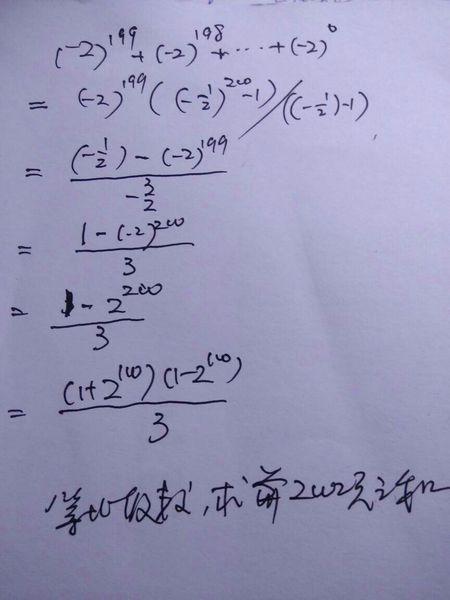 (-2)^199 + (-2)^198 + … + (-2)^0
= (-2)^199 ((-1/2)^200 - 1) / ((-1/2) - 1)
= ((-1/2) - (-2)^199) / (-3/2)
= (1 - (-2)^200) / 3
= (1 - 2^200) / 3
= ((1+2^100)(1-2^100)) / 3
等比级数,求前200项之和